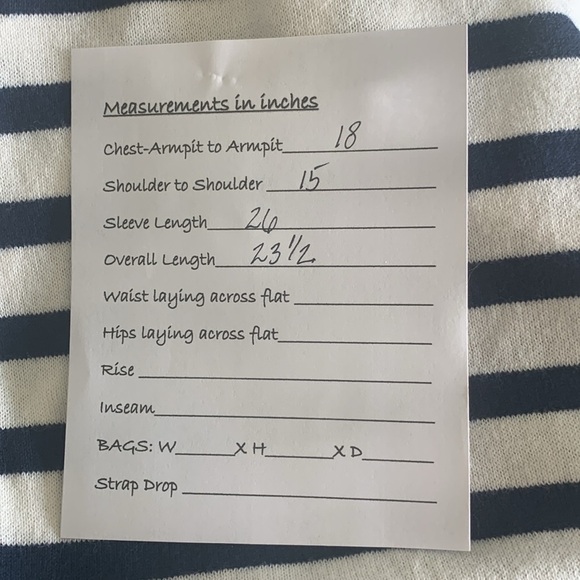 Measurements in inches
Chest-Armpit to Armpit 18
Shoulder to Shoulder 15
Sleeve Length 26
Overall Length 23 1/2
Waist laying across flat
Hips laying across flat
Rise
Inseam
BAGS: W X H X D
Strap Drop